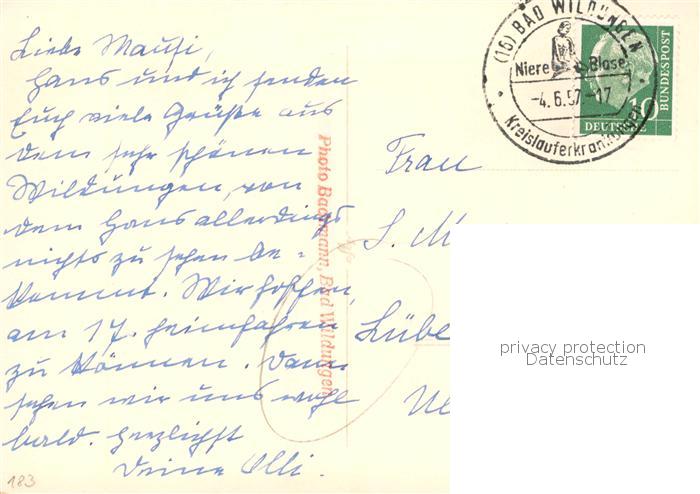 Liebe Mausi,
Hans und ich senden
Euch viele Grüße aus
dem sehr schönen
Wildungen, von
dem Hans allerdings
nichts zu sehen be-
kommt. Wir hoffen,
am 17. heimfahren
zu können. Dann
sehen wir uns wohl
bald. Herzlichst
Deine Olli.
183
Photo Bachmann, Bad Wildungen
(16) BAD WILDUNGEN
Niere Blase
-4.6.57.-17
Kreislauferkrankungen
10
DEUTSCHE
BUNDESPOST
Frau
S. M
Lübe
privacy protection
Datenschutz